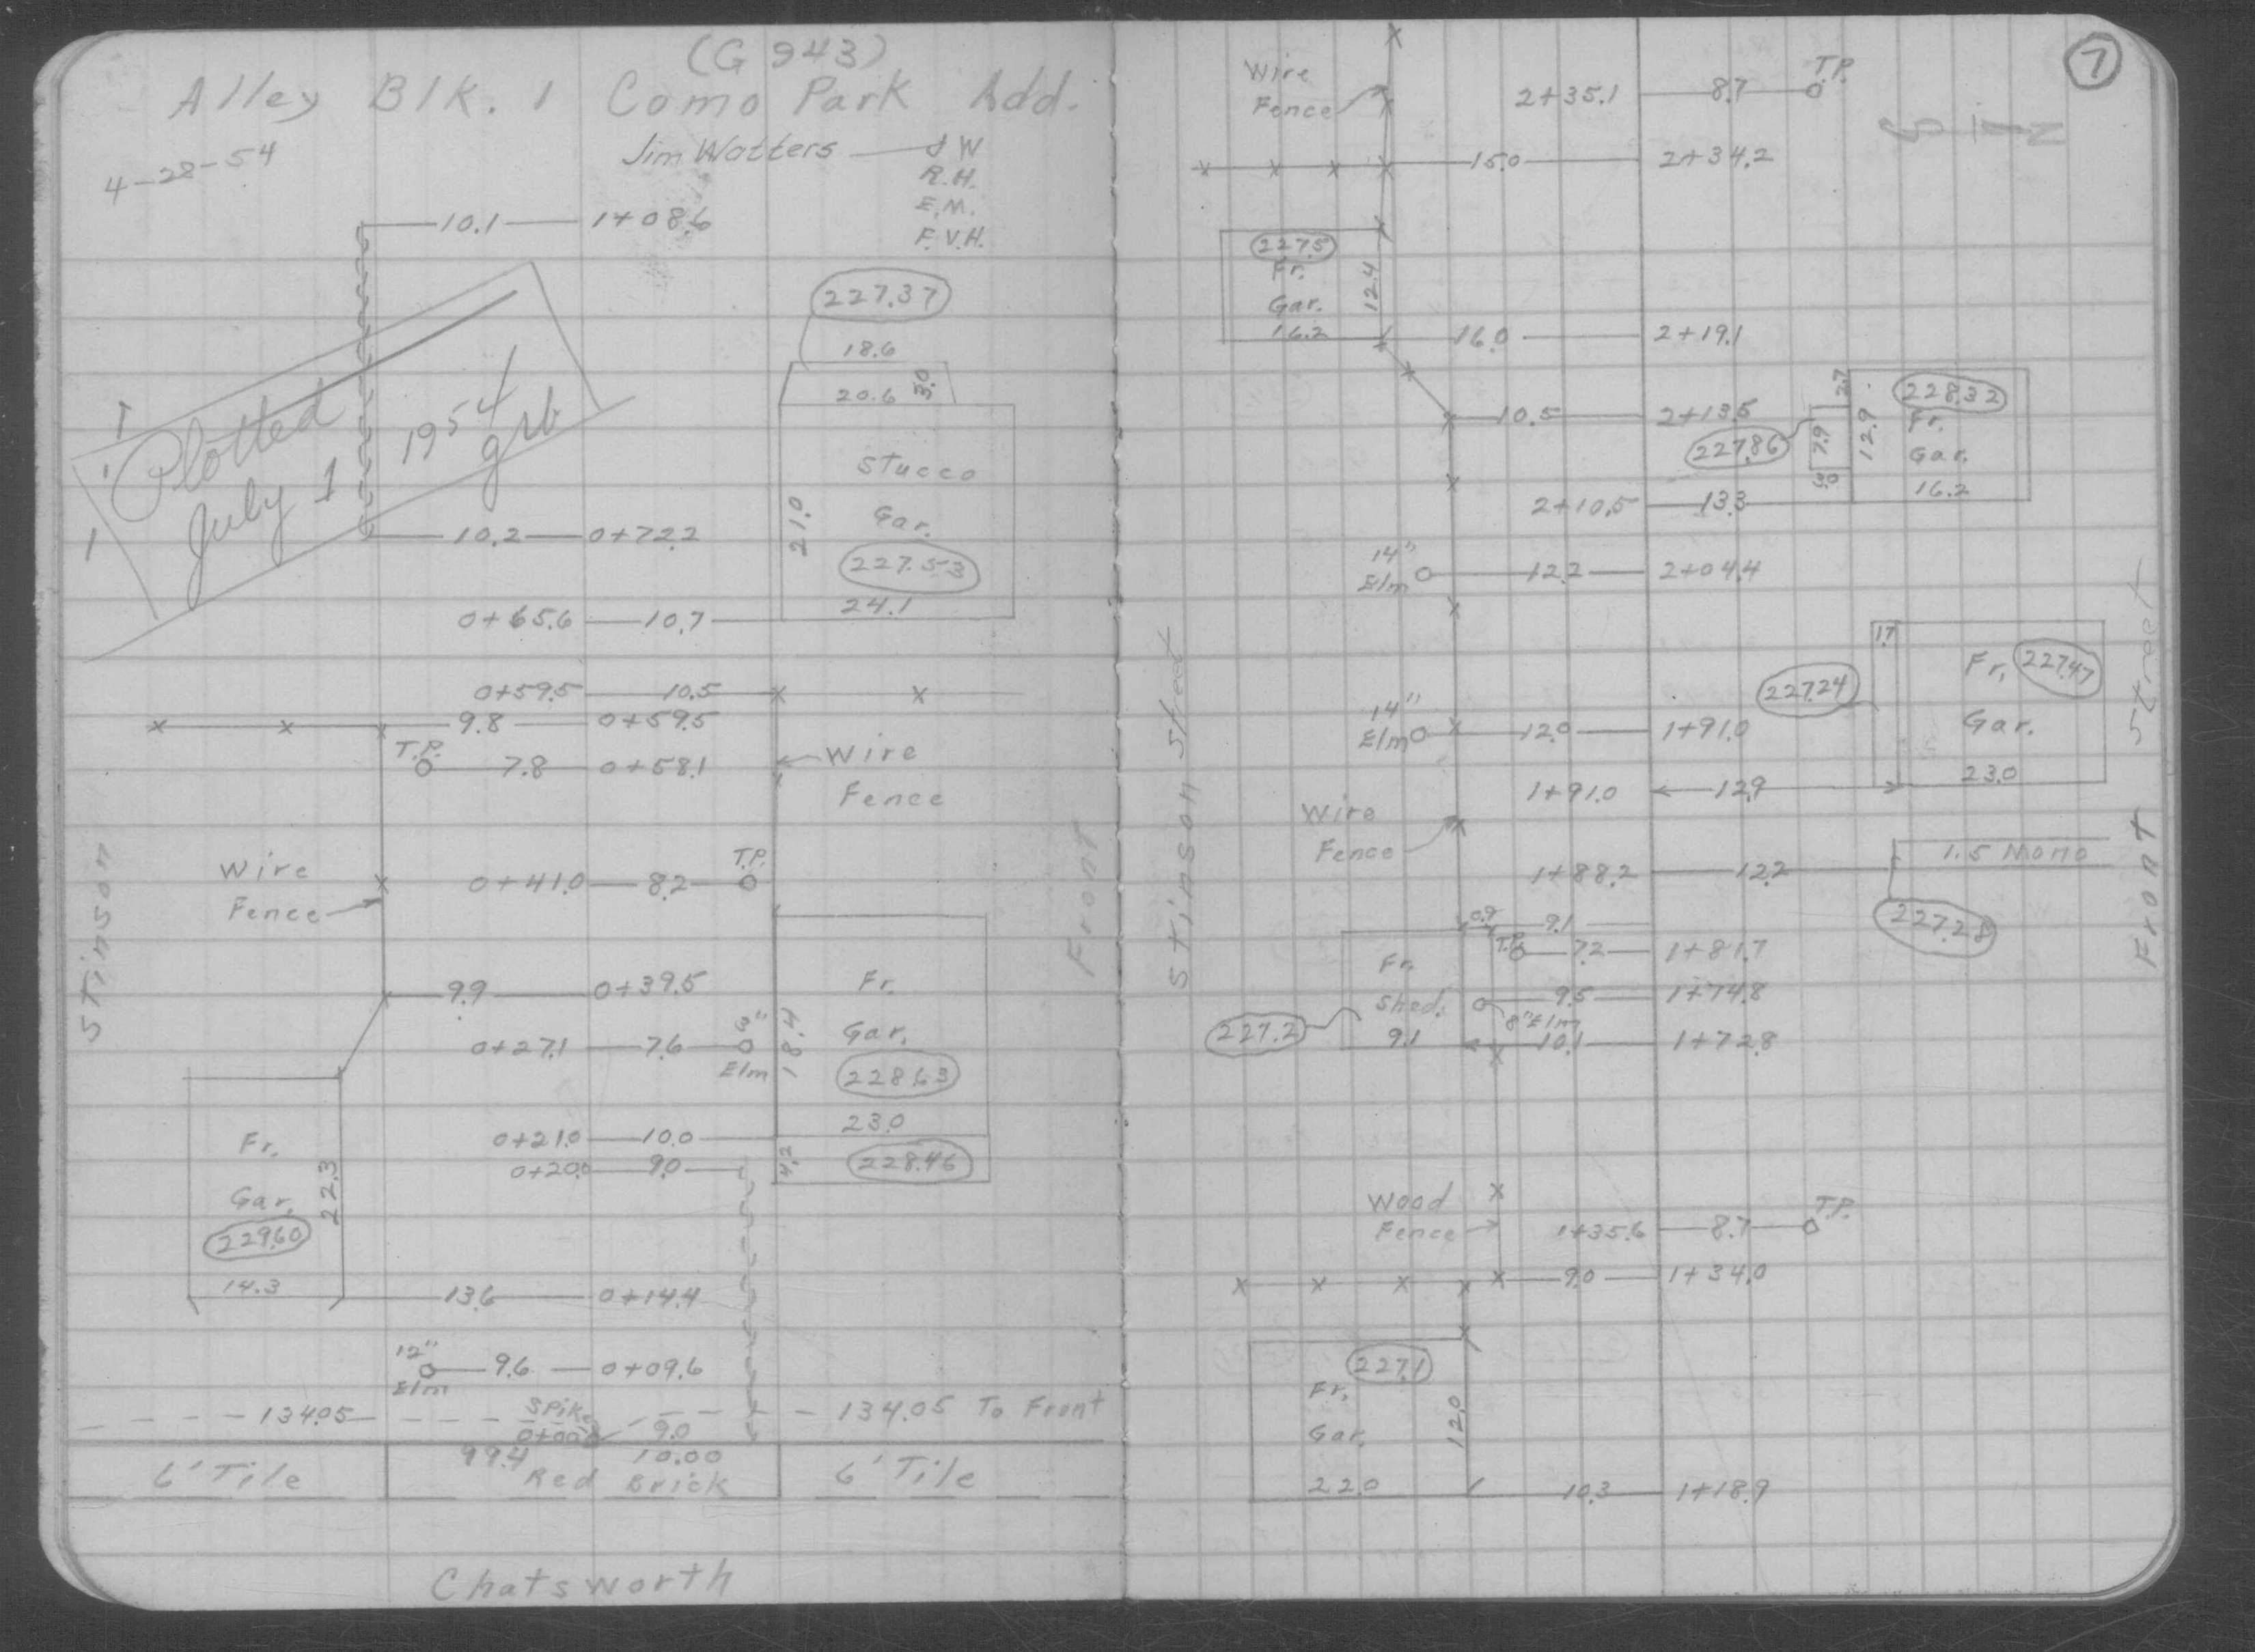 (G 943)
Alley Blk. 1 Como Park Add.
4-28-54
Jim Watters J W
R.H.
E.M.
F.V.H.
10.1 1+08.6
227.37
18.6
20.6 3.0
Plotted
July 1 1954
grb
Stucco
Gar.
21.0
227.53
24.1
10.2 0+72.2
0+65.6 10.7
0+59.5 10.5
9.8 0+59.5
T.P.
7.8 0+58.1
Wire
Fence
Wire
Fence
0+41.0 8.2
T.P.
Stinson
Front
9.9 0+39.5
Fr.
Gar.
18.4
228.63
23.0
0+27.1 7.6
Elm
0+21.0 10.0
0+20.0 9.0
4.2
228.46
Fr.
Gar.
22.3
229.60
14.3
13.6 0+14.4
12"
Elm
9.6 0+09.6
134.05
Spike
0+00
9.0
134.05 To Front
6' Tile
99.4 10.00
Red Brick
6' Tile
Chatsworth
7
Wire
Fence
2+35.1 8.7
T.P.
N
15.0 2+34.2
227.5
Fr.
Gar.
16.2
12.4
16.0 2+19.1
10.5 2+13.5
227.86
2.7
7.9
3.0
12.9
228.32
Fr.
Gar.
16.2
2+10.5 13.3
14"
Elm
12.2 2+04.4
Stinson Street
Front Street
1.7
Fr. 227.47
Gar.
23.0
227.24
14"
Elm
12.0 1+91.0
1+91.0 12.9
Wire
Fence
1.5 Mono
1+88.2 12.2
227.28
0.9 9.1
T.P.
7.2 1+81.7
Fr.
Shed.
9.1
227.2
9.5 1+74.8
8" Elm
10.1 1+72.8
Wood
Fence
1+35.6 8.7
T.P.
9.0 1+34.0
227.1
Fr.
Gar.
22.0
12.0
10.3 1+18.9